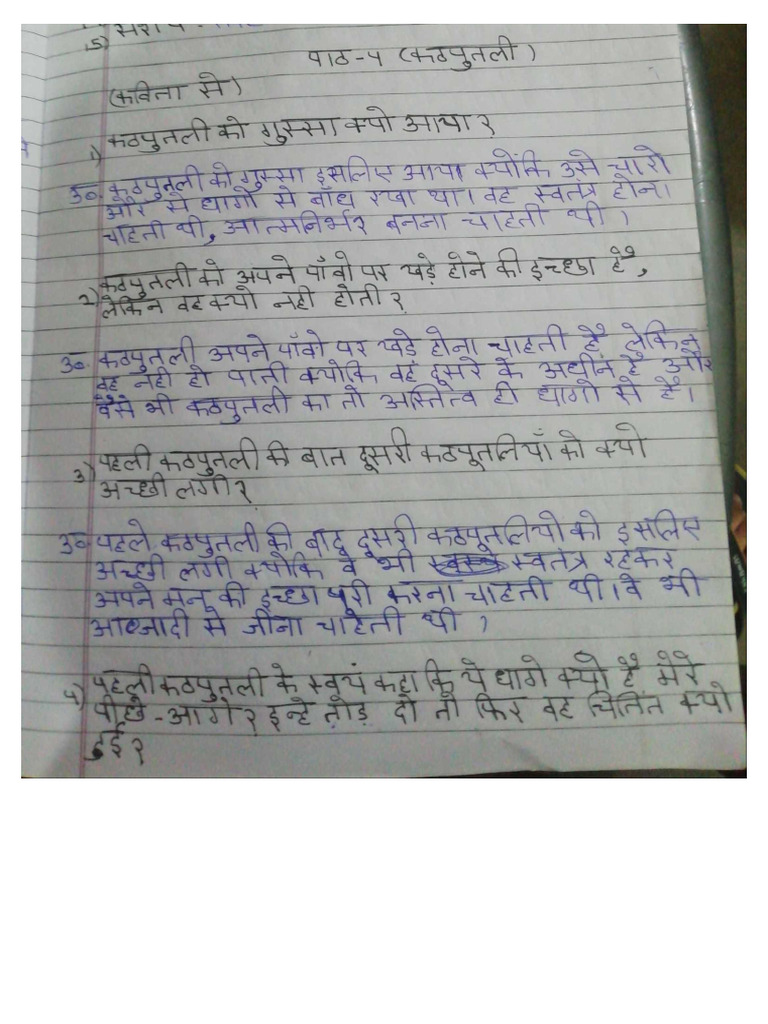 5)
पाठ-4 (कठपुतली)
(कविता से)
1) कठपुतली को गुस्सा क्यो आया?
उ०. कठपुतली को गुस्सा इसलिए आया क्योंकि उसे चारो
ओर से धागो से बाँध रखा था। वह स्वतंत्र होना
चाहती थी, आत्मनिर्भर बनना चाहती थी।
2) कठपुतली को अपने पाँवो पर खड़े होने की इच्छा है,
लेकिन वह क्यो नही होती?
उ०. कठपुतली अपने पाँवो पर खड़े होना चाहती है लेकिन
वह नही हो पाती क्योकि वह दूसरे के अधीन है और
वैसे भी कठपुतली का तो अस्तित्व ही धागो से है।
3) पहली कठपुतली की बात दूसरी कठपूतलियाँ को क्यो
अच्छी लगी?
उ०. पहले कठपुतली की बात दूसरी कठपूतलियो को इसलिए
अच्छी लगी क्योकि वे भी स्वतंत्र रहकर
अपने मन की इच्छा पूरी करना चाहती थी। वे भी
आज्जादी से जीना चाहती थी।
4) पहली कठपुतली के स्वयं कहा कि ये धागे क्यो है मेरे
पीछे-आगे? इन्हे तोड़ दो तो फिर वह चिंतित क्यो
हुई?